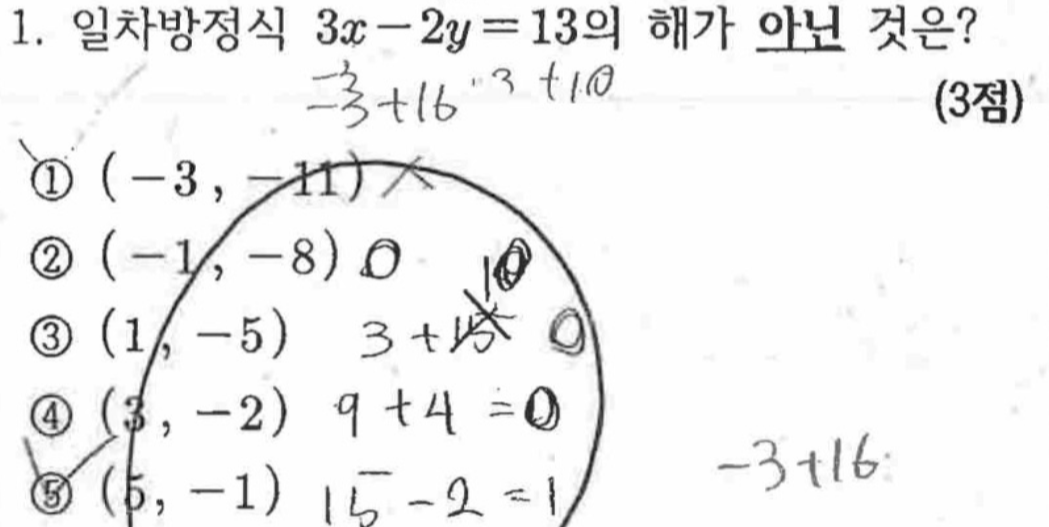 1. 일차방정식 3x-2y=13의 해가 아닌 것은?
-3+16 3+10
(3점)
① (-3, -11) ×
② (-1, -8) 0
10
③ (1, -5) 3+15 0
④ (3, -2) 9+4=0
⑤ (5, -1) 15-2=1
-3+16